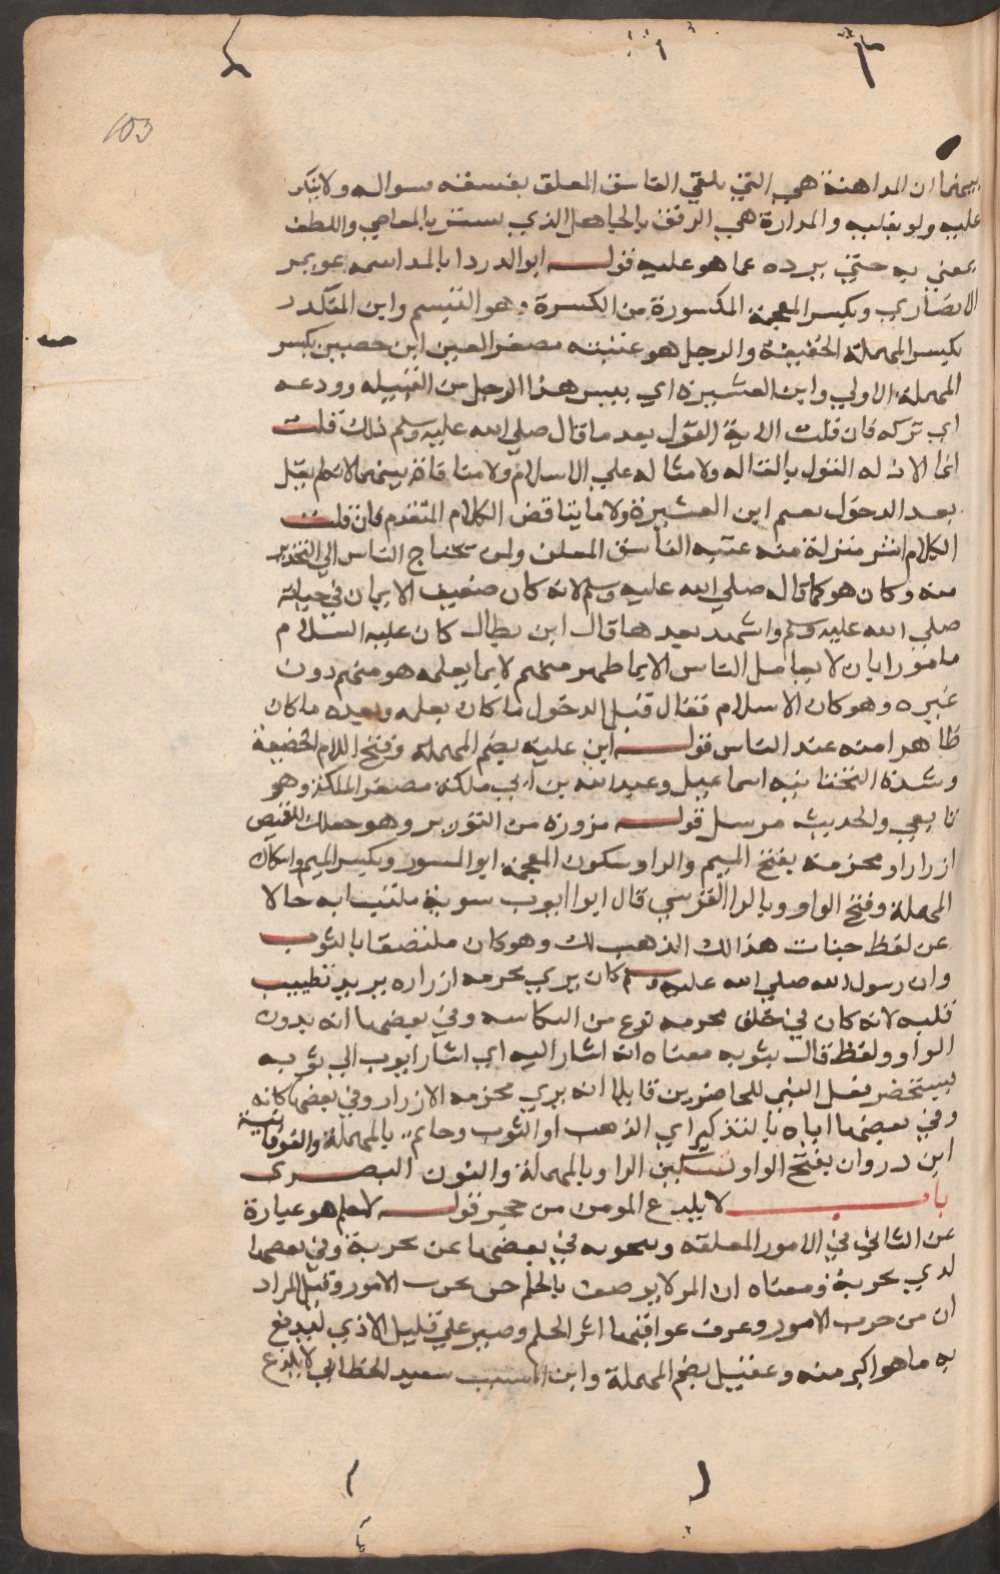 103
بينهما ان المداهنة هي التي يلقي الفاسق المعلق بفسقه سواله ولا ينكر
عليه ولو بقلبه والمدارة هي الرفق بالجاهل الذي يستتر بالمعاصي واللطف
به حتي يرده عما هو عليه قوله ابو الدردا بالمد اسمه عويمر
الانصاري وبكسر المعجمة المكسورة من الكسرة وهو التبسم وابن المنكدر
بكسر المهملة الخفيفة والرجل هو عيينه مصغر العين ابن حصين بكسر
المهملة الاولي وابن العشيرة اي بيس هذا الرجل من القبيله وودعه
اي تركه فان قلت الاية القول بعد ما قال صلي الله عليه وسلم ذلك قلت
انما الان له القول له علي الاسلام ولا منافاة بينهما لانه لم يقل
بعد الدخول نعم ابن العشيرة ولا ما يناقض الكلام المتقدم فان قلت
الكلام منه الفاسق المعلن ولمن يحتاج الناس الي التحذير
منه وكان هو كما قاله صلي الله عليه وسلم لانه كان ضعيف الايمان في حياته
صلي الله عليه وسلم بعدها قال ابن بطال كان عليه السلام
مامورا بان لا يعامل الناس الا بما ظهر منهم لا بما يعلمه هو منهم دون
غيره وهو كان الاسلام فقال قبل الدخول ما كان يعلمه وبعده ما كان
ظاهرا منه عند الناس قوله ابن علية بضم المهملة وفتح اللام الخفيفة
وشدة التحتانيه اسماعيل وعبد الله بن ابي ملكة مصغر الملكة وهو
تابعي والحديث مرسل قوله مزورة من التزوير وهو جعلك للقميص
ازرارا ومخرمة بفتح الميم والراو سكون المعجمة ابو المسور وبكسر الميم واسكان
المهملة وفتح الواو وبالرا القرشي قال ايوا ايوب بثوبه ملتبسا به حالا
عن لفظ خبات هذا لك الذهب لك وهو كان ملتصقا بالثوب
وان رسول الله صلي الله عليه وسلم كان يري مخرمه ازراره يريد تطييب
قلبه لانه كان في خلق مخرمه نوع من الشكاسه وفي بعضها انه بدون
الواو ولفظ قال بثوبه معناه انه اشار اليه اي اشار ايوب الي ثوبه
يستحضر فعل النبي للحاضرين قايلا انه يري مخرمه الازرار وفي بعضها كانه
وفي بعضها اياه بالتذكير اي الذهب او الثوب وحاتم بالمهملة والفوقانية
ابن دروان بفتح الواو تسكين الراو بالمهملة والنون البصري
باب لا يلدغ المومن من حجر قوله لا حلم هو عبارة
عن التاني في الامور المعلقه في بعضها عن تجربة وفي بعضها
لدي تجربة ومعناه ان المر لا يوصف بالحلم حتي يجرب الامور وقيل المراد
ان من جرب الامور وعرف عواقبها اثر الحلم وصبر علي قليل الاذي ليدفع
به ما هو اكبر منه وعقيل بضم المهملة وابن المسيب سعيد الخطابي لا يلدغ